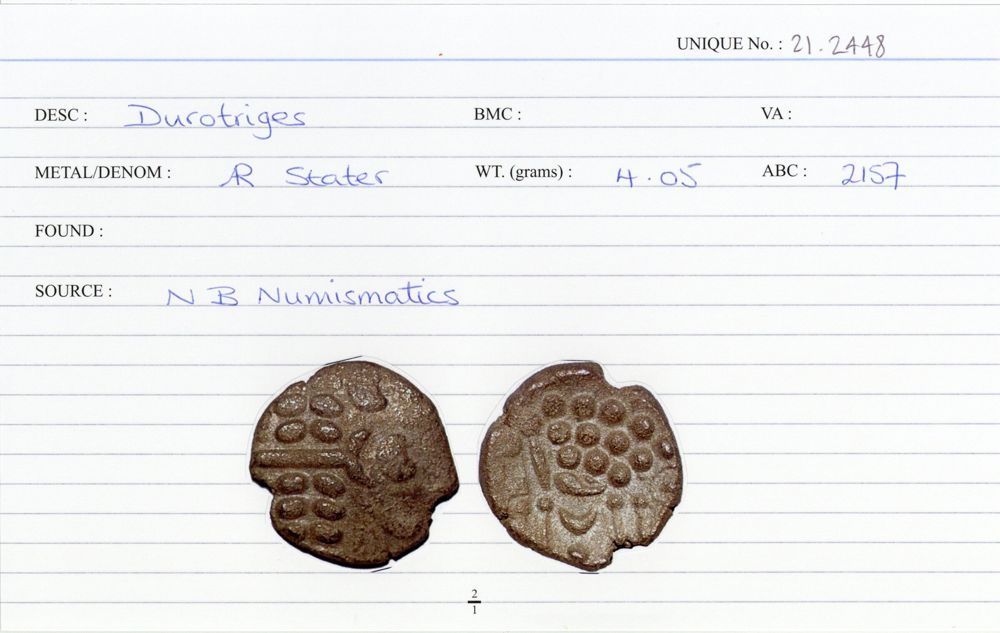 UNIQUE No. : 21.2448
DESC : Durotriges BMC : VA :
METAL/DENOM : AR Stater WT. (grams) : 4.05 ABC : 2157
FOUND :
SOURCE : N B Numismatics
2
1